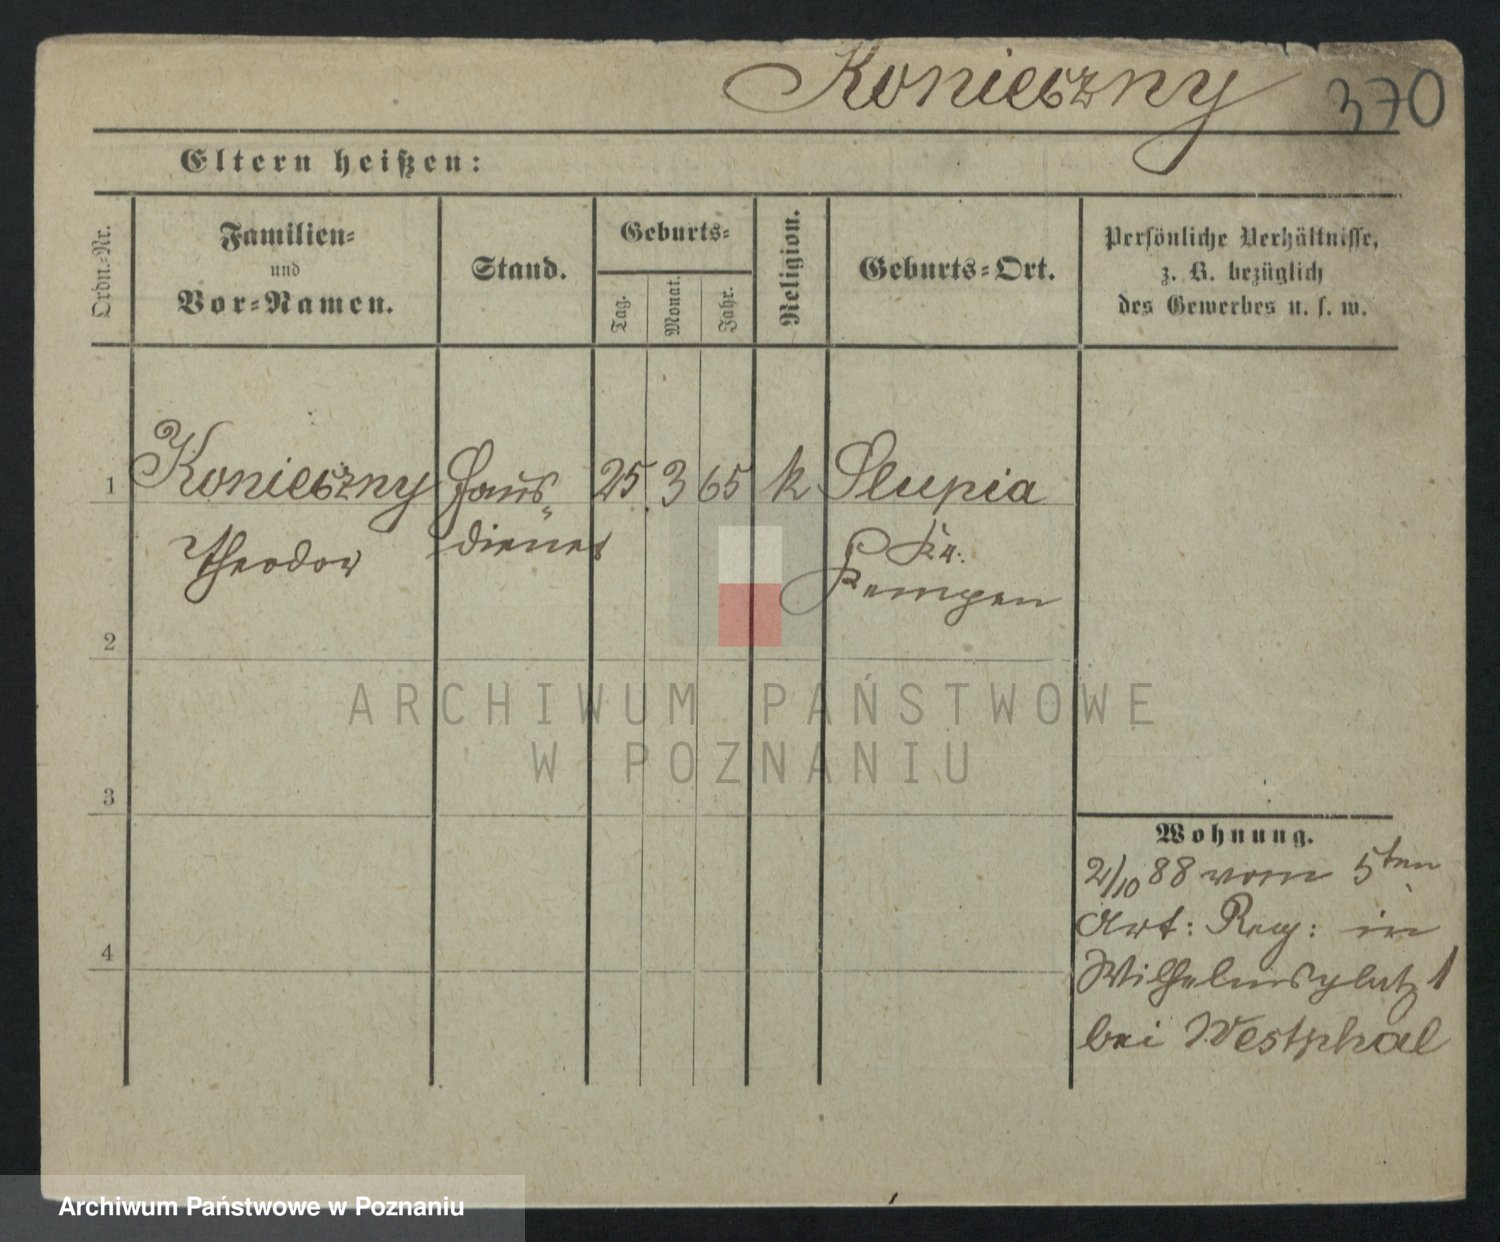 Konieczny 370
Eltern heißen:
Ordn.-Nr.
Familien-
und
Vor-Namen.
Stand.
Geburts-
Tag.
Monat.
Jahr.
Religion.
Geburts-Ort.
Persönliche Verhältnisse,
z. B. bezüglich
des Gewerbes u. s. w.
1 Konieczny Haus- 25. 3 65 k Slupia
Theodor diener Kr.
Kempen
2
3
4
Wohnung.
2/10 88 vom 5ten
Art: Reg: in
Wilhelmsplatz 1
bei Westphal
ARCHIWUM PAŃSTWOWE
W POZNANIU
Archiwum Państwowe w Poznaniu